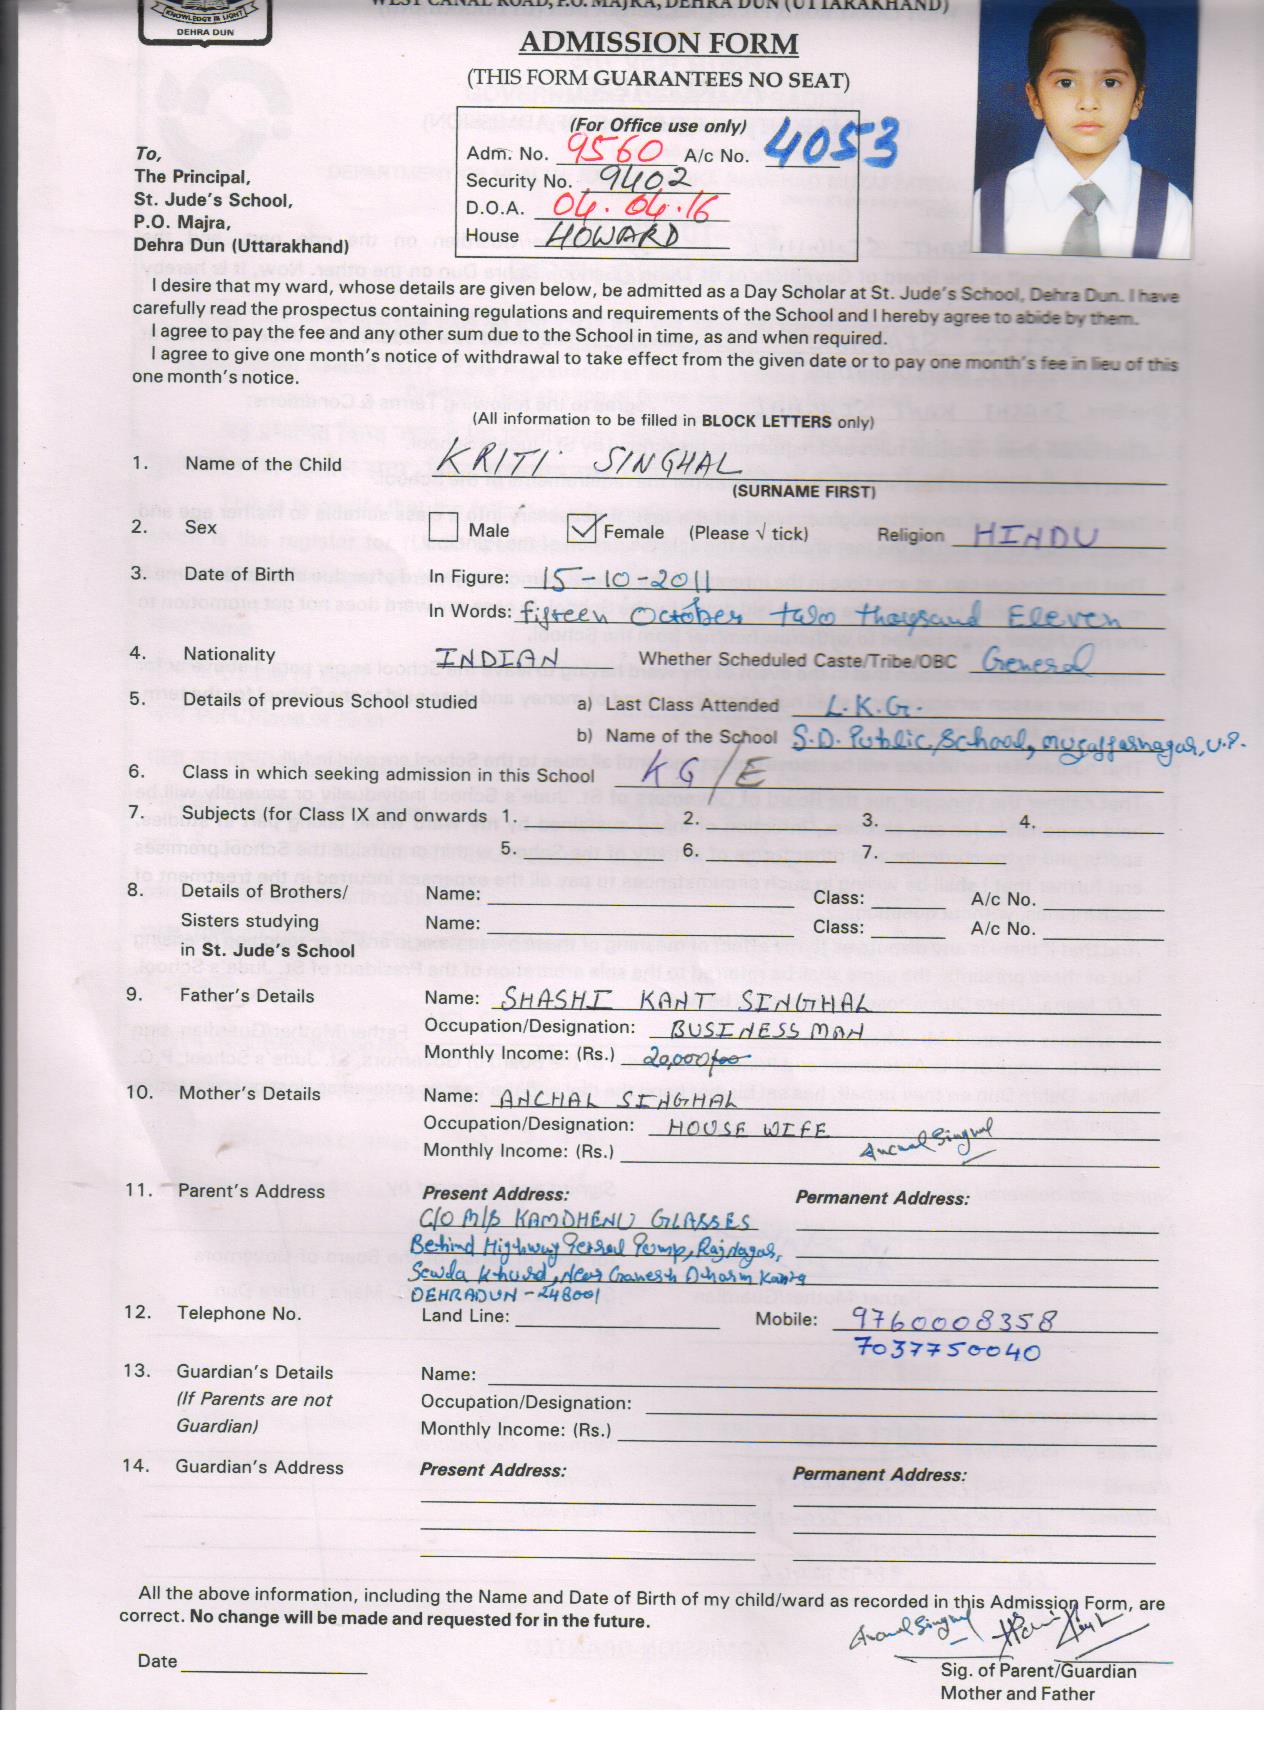 KNOWLEDGE IS LIGHT
DEHRA DUN
WEST CANAL ROAD, P.O. MAJRA, DEHRA DUN (UTTARAKHAND)
ADMISSION FORM
(THIS FORM GUARANTEES NO SEAT)
(For Office use only)
Adm. No. 9560 A/c No. 4053
Security No. 9402
D.O.A. 04.04.16
House HOWARD
To,
The Principal,
St. Jude's School,
P.O. Majra,
Dehra Dun (Uttarakhand)
I desire that my ward, whose details are given below, be admitted as a Day Scholar at St. Jude's School, Dehra Dun. I have
carefully read the prospectus containing regulations and requirements of the School and I hereby agree to abide by them.
I agree to pay the fee and any other sum due to the School in time, as and when required.
I agree to give one month's notice of withdrawal to take effect from the given date or to pay one month's fee in lieu of this
one month's notice.
(All information to be filled in BLOCK LETTERS only)
1. Name of the Child KRITI SINGHAL
(SURNAME FIRST)
2. Sex Male Female (Please √ tick) Religion HINDU
3. Date of Birth In Figure: 15-10-2011
In Words: fifteen October two thousand Eleven
4. Nationality INDIAN Whether Scheduled Caste/Tribe/OBC General
5. Details of previous School studied a) Last Class Attended L.K.G.
b) Name of the School S.D. Public School, Muzaffarnagar, U.P.
6. Class in which seeking admission in this School KG/E
7. Subjects (for Class IX and onwards 1. 2. 3. 4.
5. 6. 7.
8. Details of Brothers/ Name: Class: A/c No.
Sisters studying Name: Class: A/c No.
in St. Jude's School
9. Father's Details Name: SHASHI KANT SINGHAL
Occupation/Designation: BUSINESS MAN
Monthly Income: (Rs.) 20,000/=00
10. Mother's Details Name: ANCHAL SINGHAL
Occupation/Designation: HOUSE WIFE
Monthly Income: (Rs.) Anchal Singhal
11. Parent's Address Present Address: Permanent Address:
C/O M/S KAMDHENU GLASSES
Behind Highway Petrol Pump, Rajnagar,
Sewla Khurd, Near Ganesh Dharm Kanta
DEHRADUN - 248001
12. Telephone No. Land Line: Mobile: 9760008358
7037750040
13. Guardian's Details Name:
(If Parents are not Occupation/Designation:
Guardian) Monthly Income: (Rs.)
14. Guardian's Address Present Address: Permanent Address:
All the above information, including the Name and Date of Birth of my child/ward as recorded in this Admission Form, are
correct. No change will be made and requested for in the future.
Anchal Singhal
Date
Sig. of Parent/Guardian
Mother and Father